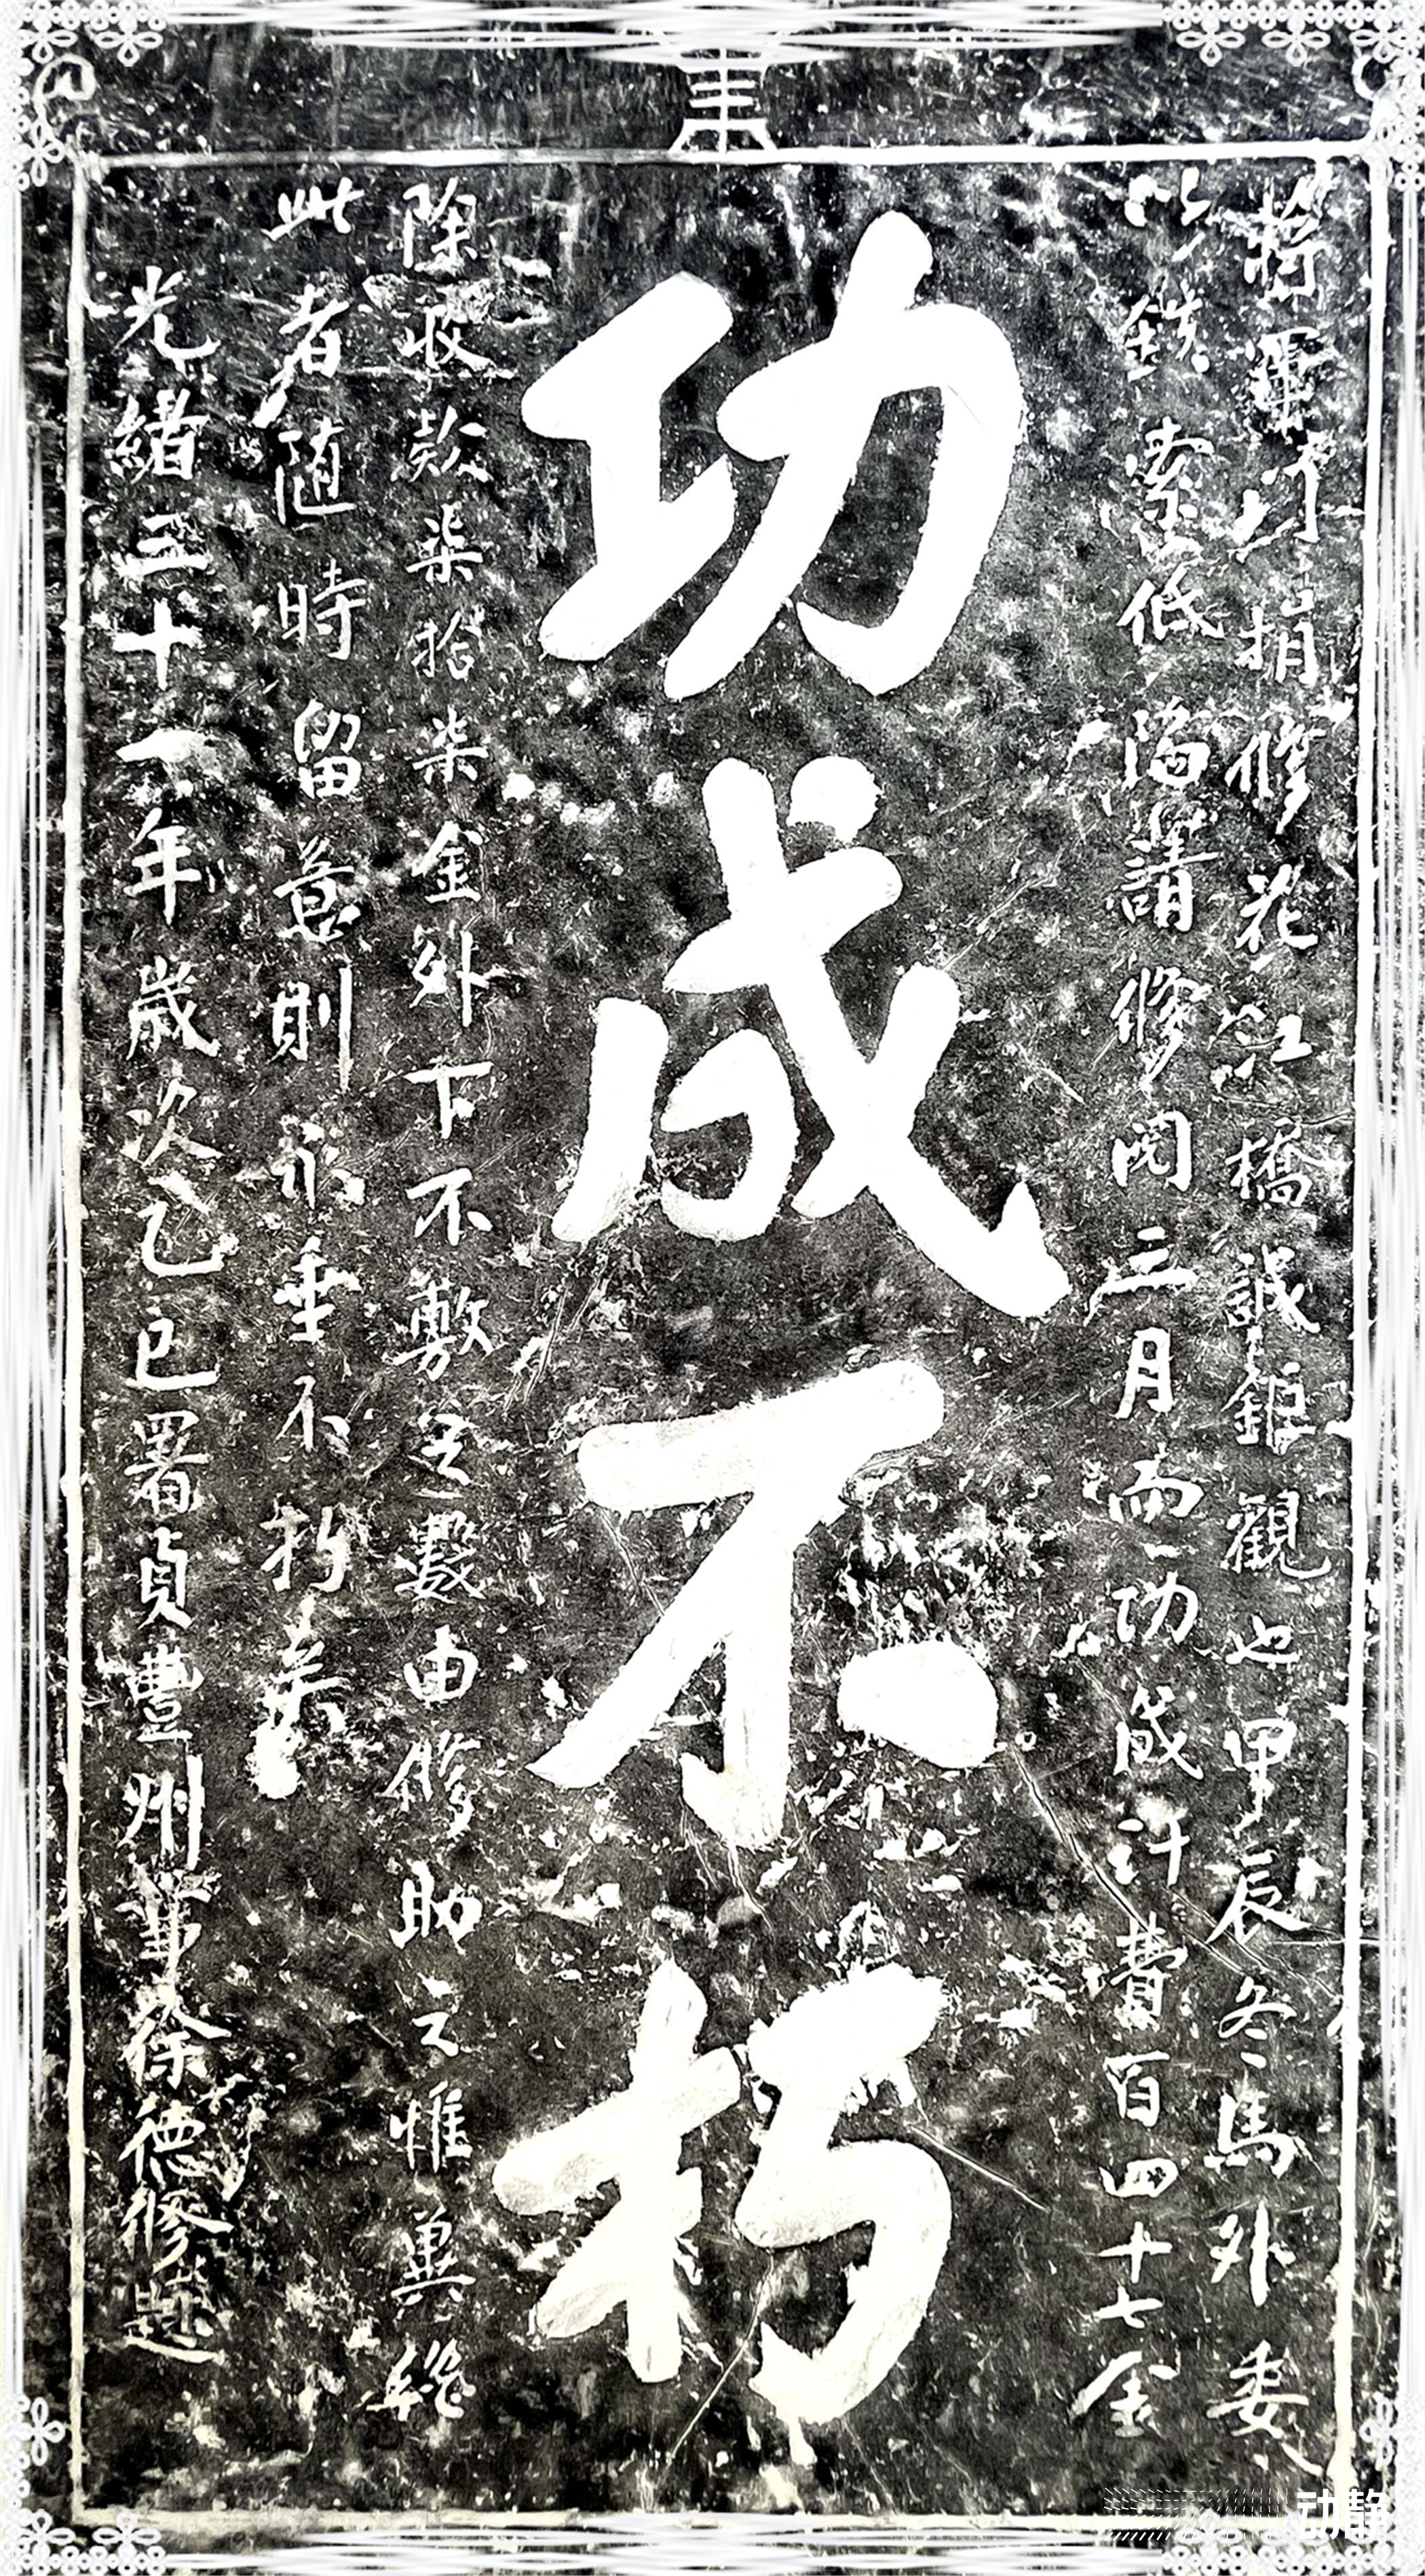 將軍蔣公捐修花江橋誠鉅觀也甲辰冬馬外委
以鉄索低陷請修閱三月而功成計費百四十七金
功成不朽
除收款柒拾柒金外下不敷之數由修助之惟冀繼
此者随時留意則永垂不朽矣
光緒三十一年歲次乙巳署貞豐州事徐德修題
动静